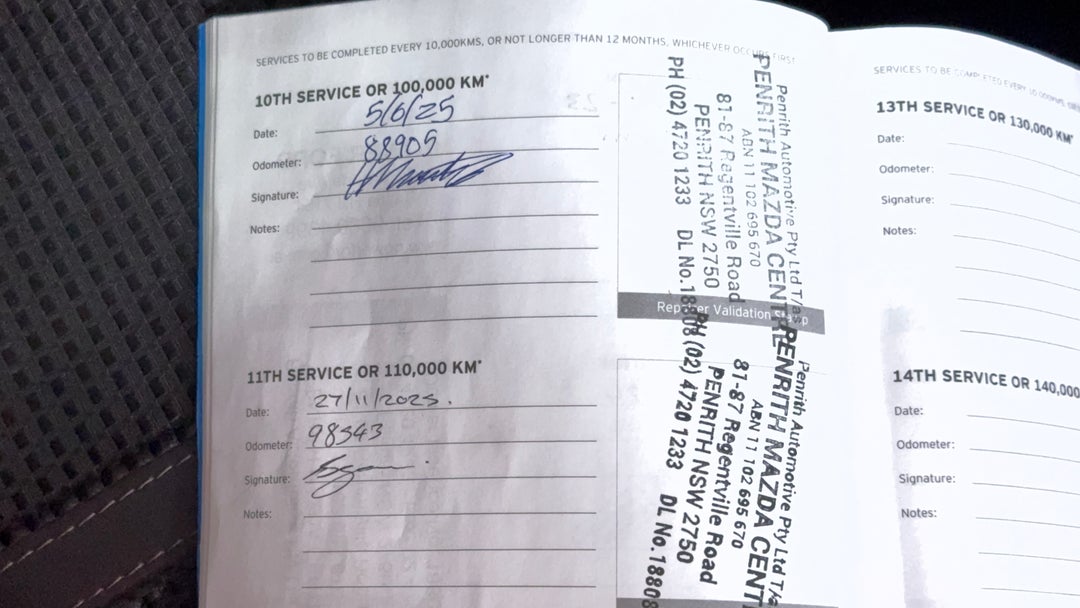 SERVICES TO BE COMPLETED EVERY 10,000KMS, OR NOT LONGER THAN 12 MONTHS, WHICHEVER OCCURS FIRST
10TH SERVICE OR 100,000 KM*
Date: 5/6/25
Odometer: 88905
Signature:
Notes:
Penrith Automotive Pty Ltd T/as
PENRITH MAZDA CENTRE
ABN 11 102 695 670
81-87 Regentville Road
PENRITH NSW 2750
PH (02) 4720 1233 DL No.18808
Repairer Validation Stamp
11TH SERVICE OR 110,000 KM*
Date: 27/11/2025.
Odometer: 98343
Signature:
Notes:
Penrith Automotive Pty Ltd T/a
PENRITH MAZDA CENT
ABN 11 102 695 670
81-87 Regentville Road
PENRITH NSW 2750
PH (02) 4720 1233 DL No.18808
SERVICES TO BE COMPLETED EVERY 10,000KMS,
13TH SERVICE OR 130,000 KM*
Date:
Odometer:
Signature:
Notes:
14TH SERVICE OR 140,000
Date:
Odometer:
Signature:
Notes: